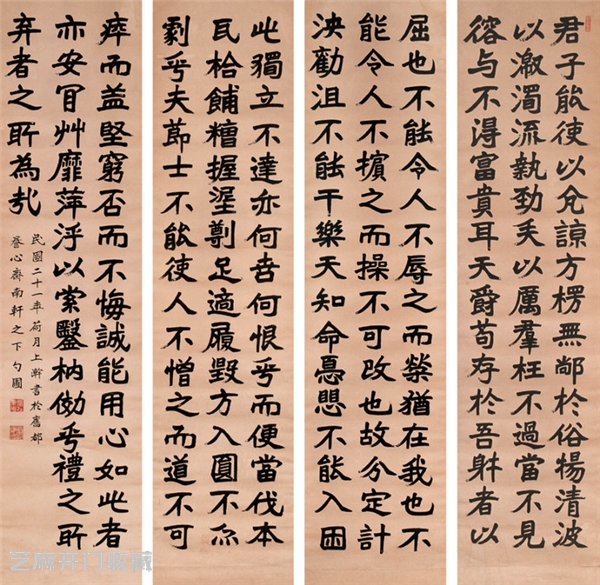 君子能使以允諒方楞無於俗揚清波
以激濁流執勁矢以厲羣枉不過當不見
容与不得富貴耳天爵苟存於吾躰者以
屈也不能令人不辱之而榮猶在我也不
能令人不擯之而操不可改也故分定計
決勸沮不能干樂天知命憂思不能入困
此獨立不達亦何苦何恨乎而便當伐本
瓦枱餔糟握埿足適履毀方入圓不亦
劇乎夫節士不能使人不憎之而道不可
瘁而益堅窮否而不悔誠能用心如此者
亦安肎艸靡萍浮以索鑿枘俲乎禮之所
弃者之所為㢤
民國二十一年荷月上澣書於舊都
養心齋南軒之下勺圃
芝麻开门收藏